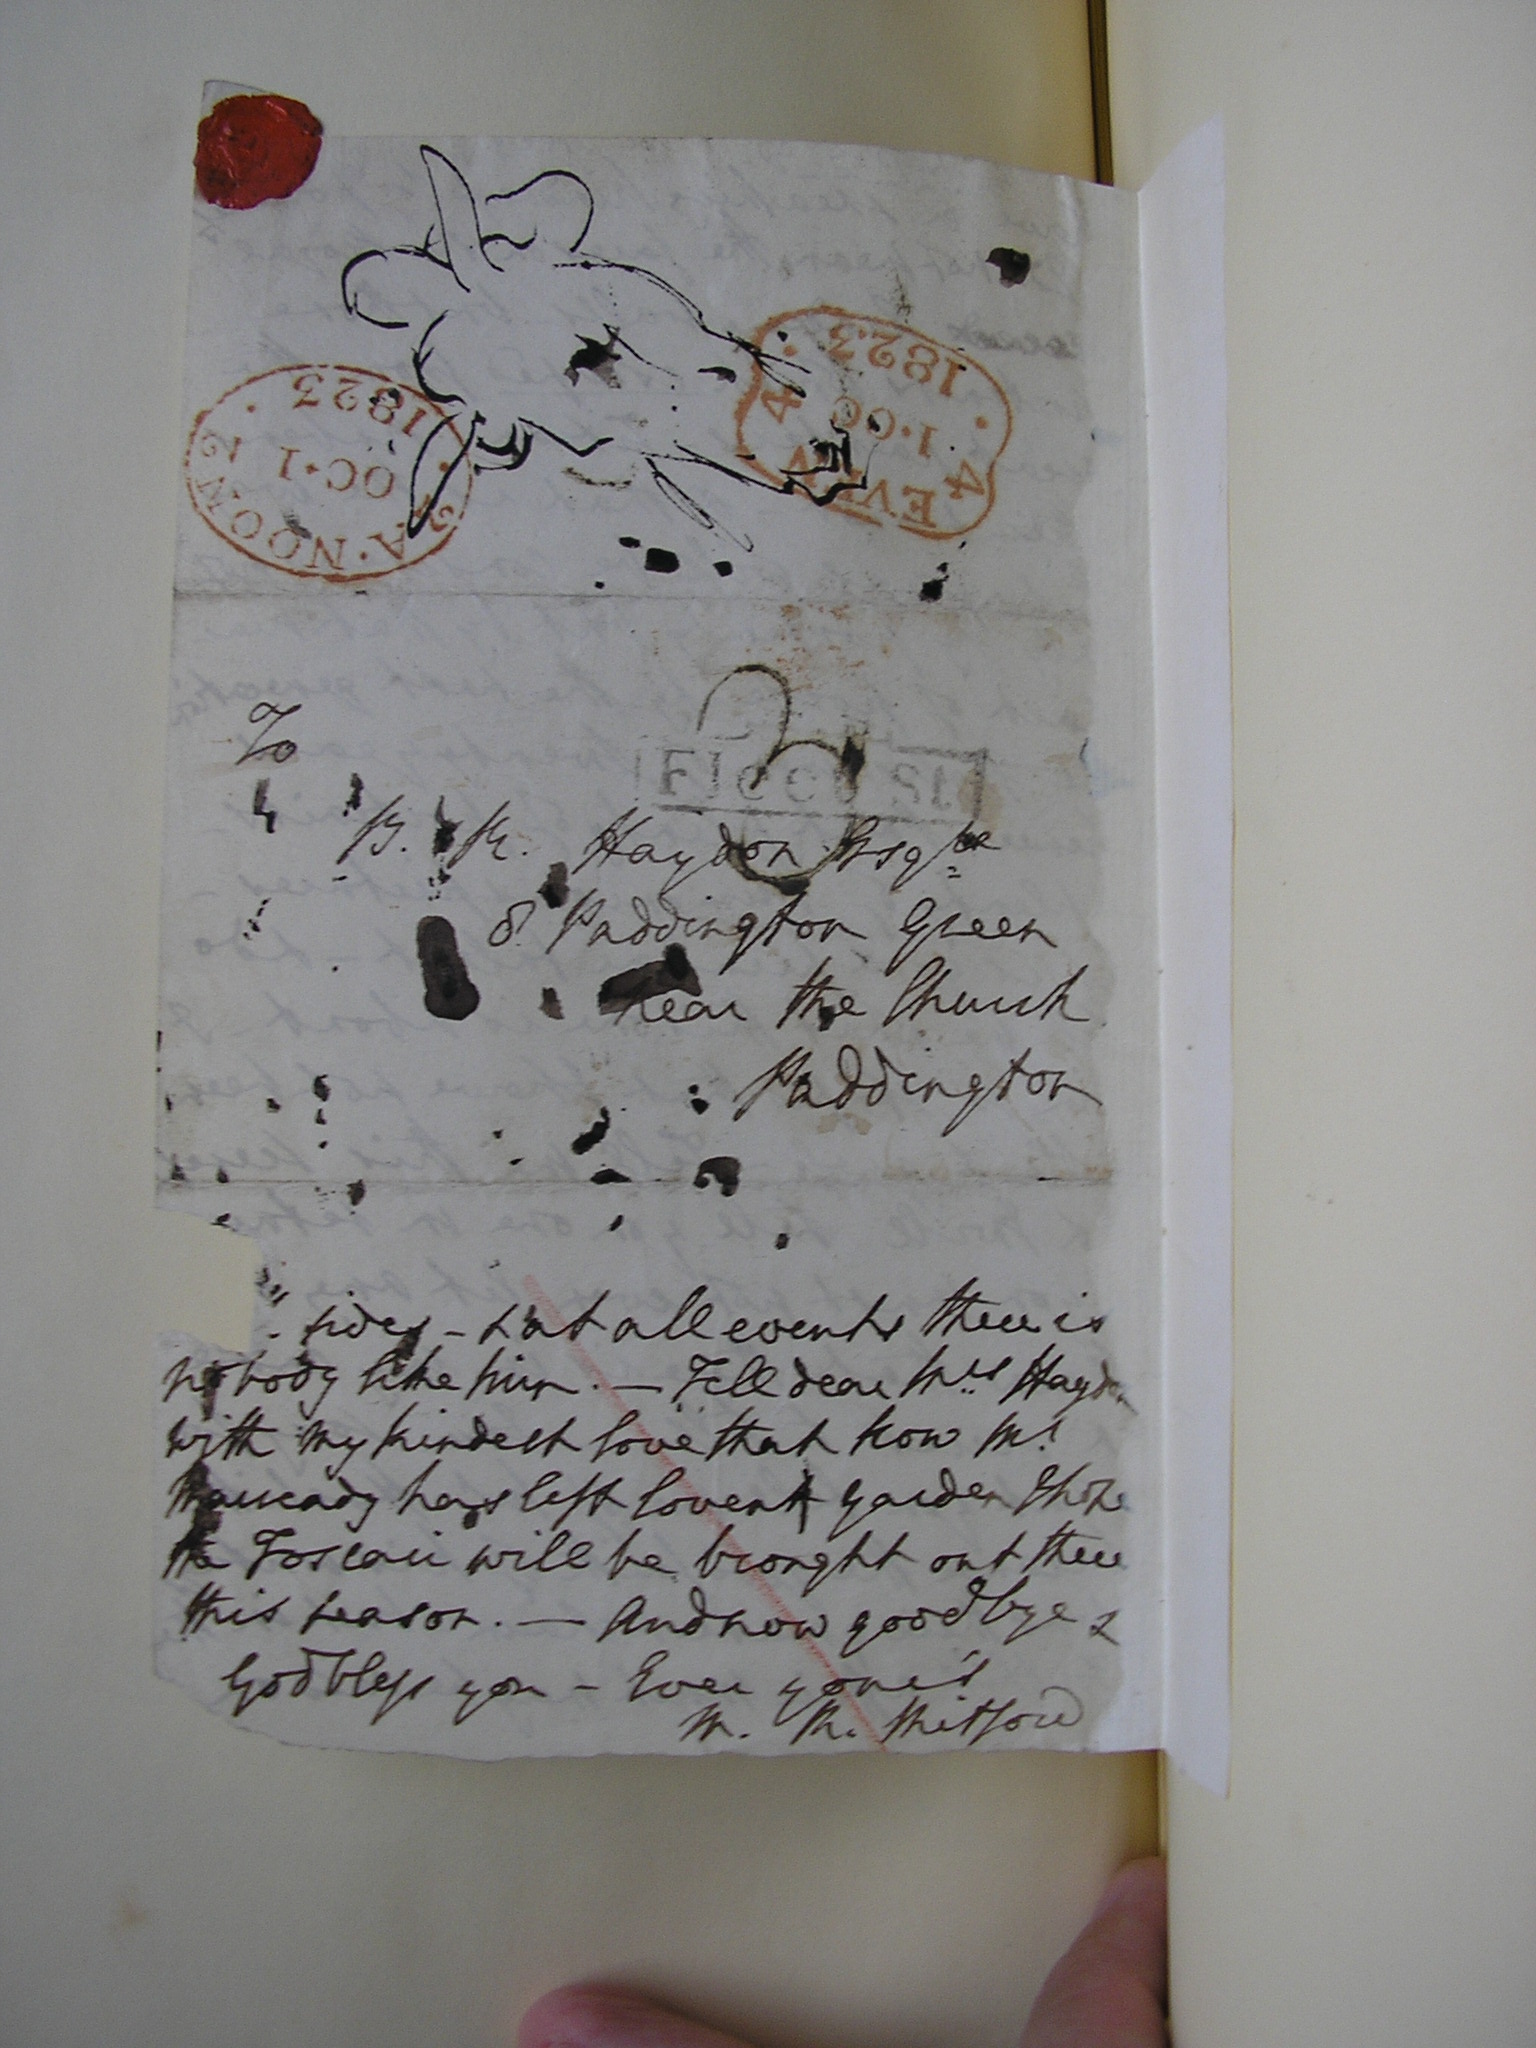 A. NOON
2 2
OC. 1
1823
4 EVEN 4
1. OC
1823
Fleet St
To
B. R. Haydon Esqre
8. Paddington Green
near the Church
Paddington
sides - at all events there is
nobody like him. — Tell dear Mrs Haydon
with my kindest love that now Mr
Macready has left Covent garden I hope
the Foscari will be brought out there
this season. — And now goodbye &
God bless you - Ever your's
M. R. Mitford